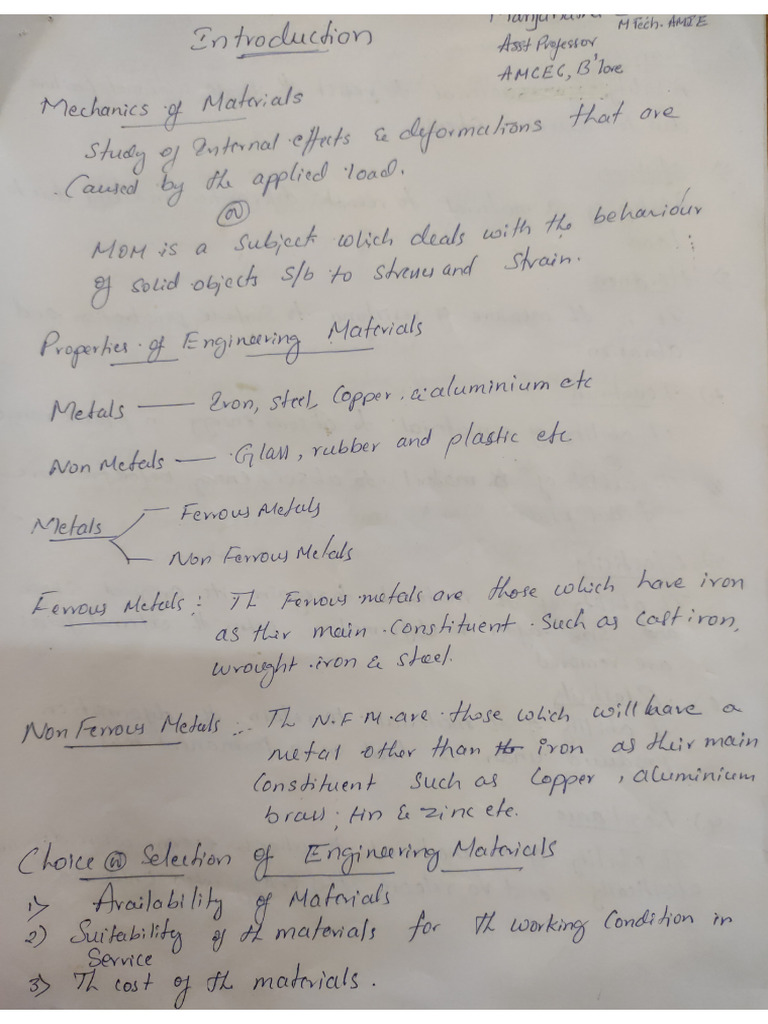 Introduction
MTech. AMIE
Asst Professor
AMCEC, B'lore
Mechanics of Materials
Study of Internal effects & deformations that are
Caused by the applied load.
(or)
MOM is a Subject which deals with the behaviour
of solid objects s/b to stresses and strain.
Properties of Engineering Materials
Metals — Iron, steel, Copper. & aluminium etc
Non Metals — Glass, rubber and plastic etc
Metals
Ferrous Metals
Non Ferrous Metals
Ferrous Metals :- Th Ferrous metals are those which have iron
as thir main Constituent such as cast iron,
wrought iron & steel.
Non Ferrous Metals :- Th N.F M. are those which will have a
metal other than iron as their main
Constituent such as Copper, aluminium
brass, tin & zinc etc.
Choice (or) Selection of Engineering Materials
1) Availability of Materials
2) Suitability of th materials for th working Condition in
Service
3) Th cost of th materials.